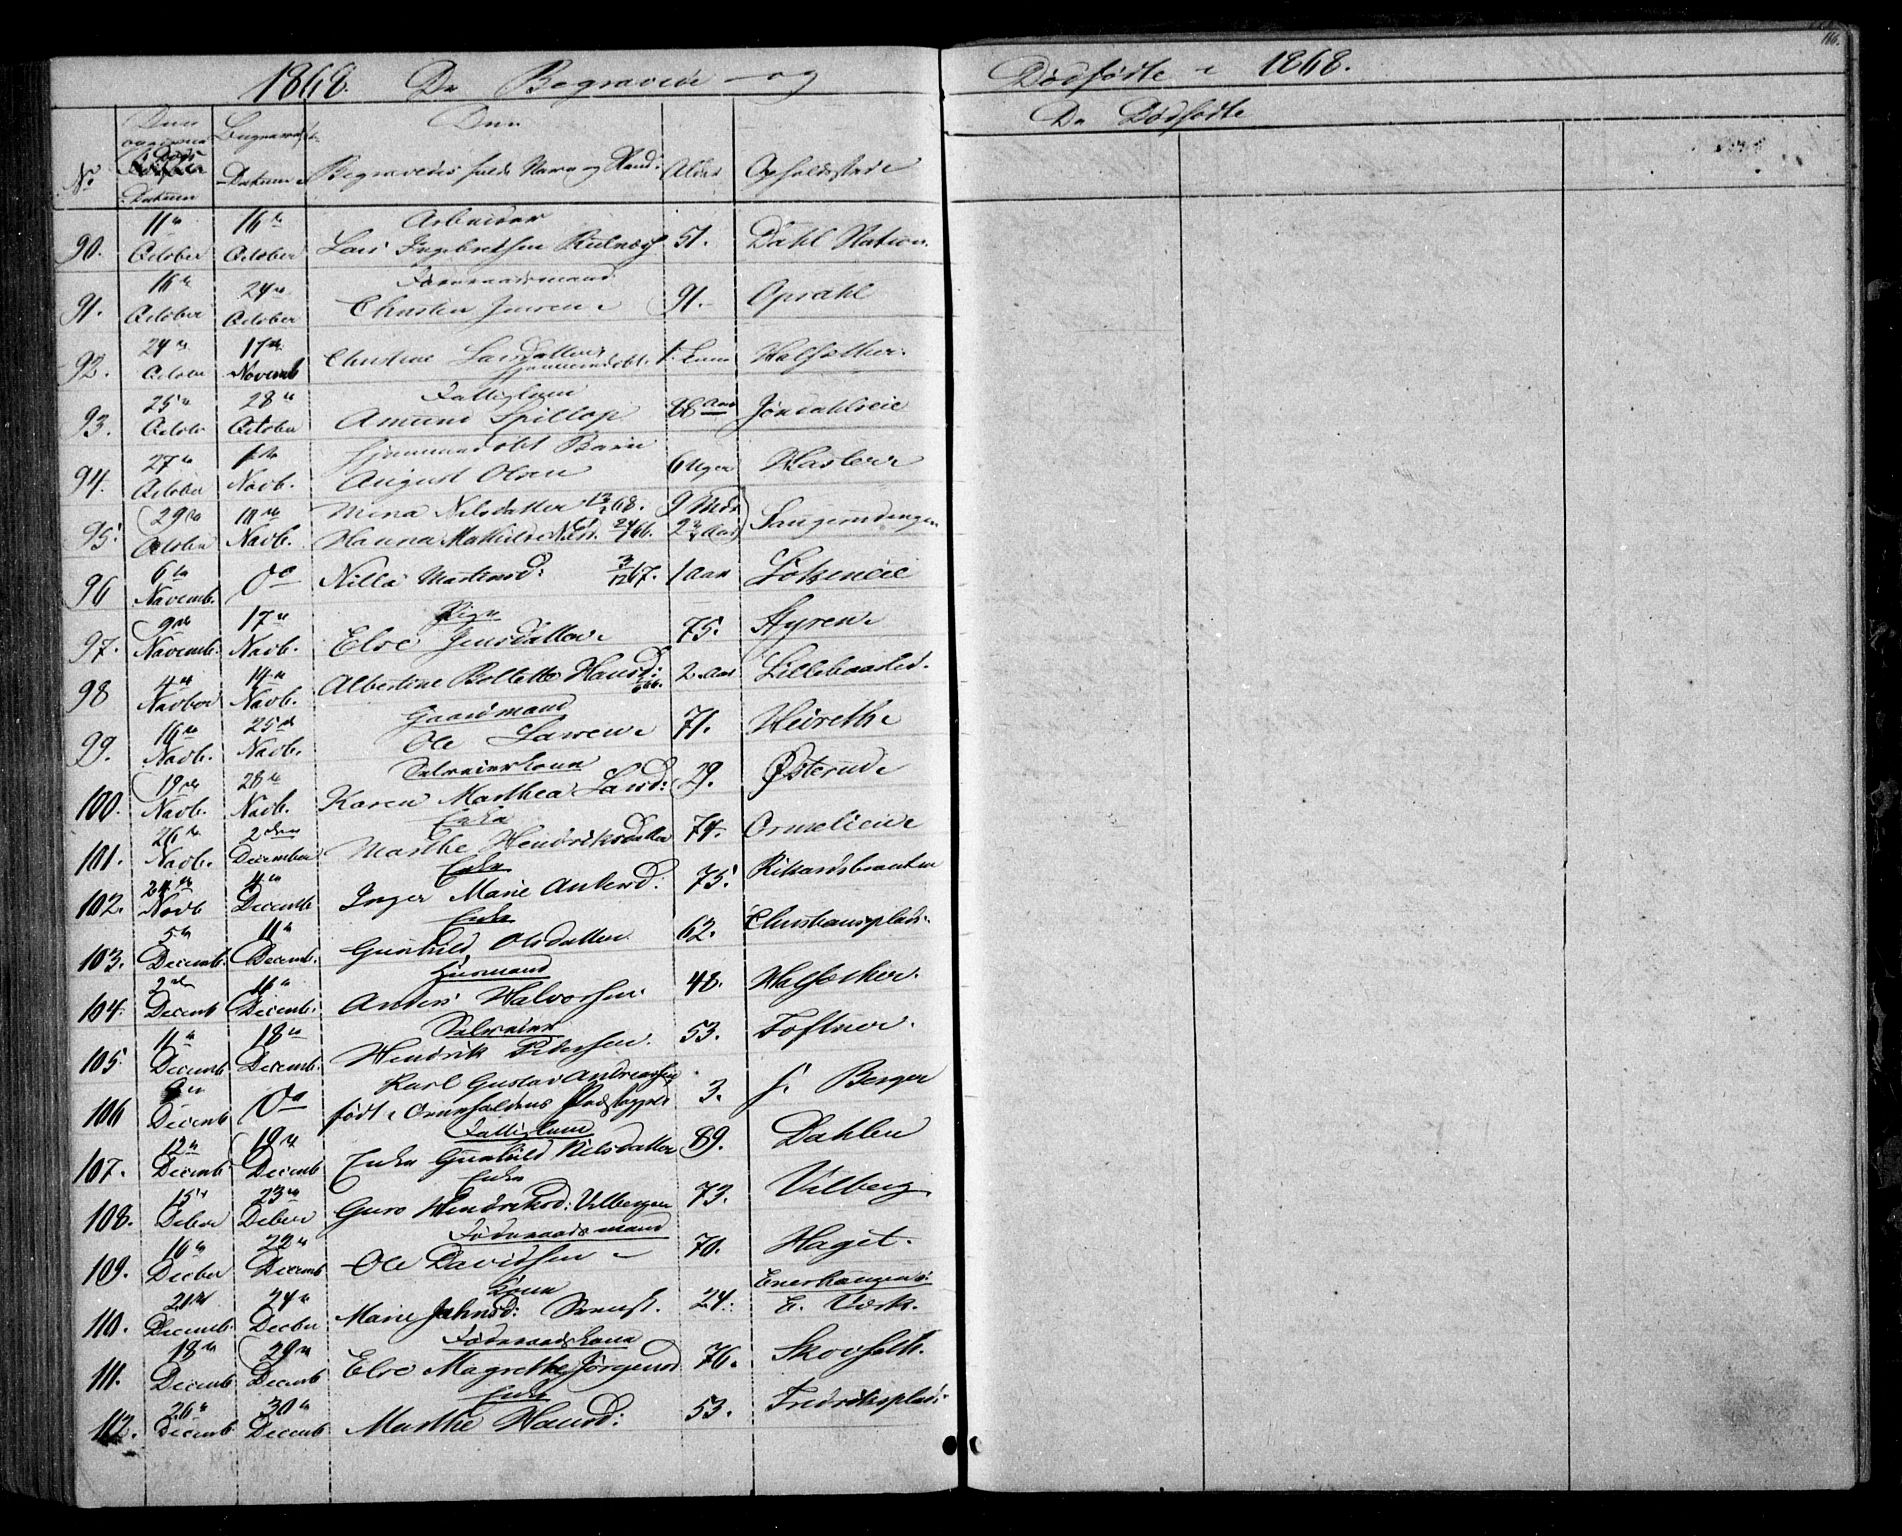 1868. De Begravede og
Dødfødte i 1868.
116.
De Dødfødte
No
Døds Datum
Begravelses Datum
Den Begravedes fulde Navn og Stand
Alder
Opholdsstæde
90. 11te October 16de October Arbeider Lars Ingebretsen 51. Dahl Station
91. 16de October 24de October Føderaadsmand Christen Jensen 91. Opsahl
92. 24de October 17de Novemb Christine Larsdatter hjemmedøbt 1. Halfother
93. 25de Octob 28de October Fattiglem Amund Spillop 88 Aar Jøndahlseie
94. 27de October 1ste Novb. Hjemmedøbt Barn August Olsen 6 Uger Haslerr
95. 29de October 14de Novb. Mina Nilsdatter 68. 9 Mdr
Hanna Mathilde Nilsd. 66. 2 3/4 Aar Saugerudengen
96 6te Novemb. Do Nilla Martensd: 3/12 67. 1 Aar Løkeneie
97. 9de Novemb. 17de Novb. Pige Else Jensdatter 75. Styren
98 4de Novbor 14de Novb. Albertine Bollette Hansd: 2 Aar Lillebaasted.
99. 16de Novb. 25de Novb. Gaardmand Ole Larsen 71. Heireth
100. 19de Novb. 28de Novb. Selveierkone Karen Marthea Larsd: 29. Østerud
101. 26de Novb. 2den December Enke Marthe Hendriksdatter 74. Ormelien
102. 24de Novb 4de Decemb Enke Inger Marie Andersd: 75. Rikardsbraaten
103. 5te Decemb. 11te Decemb. Enke Gunhild Olsdatter 62. Christiansplads
104. 2den Decemb 11te Decemb. Huusmand Anders Halvorsen 48. Halfother.
105. 11te Decemb 18de Decemb. Selveier Hendrik Pedersen. 53. Toftner.
106 9de Decemb Do Karl Gustav Andreassen
født i Præstegjeld 3. f. Berger
107. 12te Decemb 19de Decemb Fattiglem Enke Gunhild Nilsdatter 89. Dahlen
108. 15de Deber 23de Deber Enke Guro Hendriksd: Vilbergen 73. Vilberg
109. 16de Decber 22de Decemb Føderaadsmand Ole Davidsen 70. Haget.
110. 21de Decemb. 24de Decber Kone Marie Johnsd: Svensk. 24. Enerhaugen: E. Værk.
111. 18de Decemb 29de Decemb Føderaadskone Else Magrethe Jørgensd 76. Skovfalth.
112. 26de Decemb 30de Decemb Enke Marthe Hansd: 53. Fredriksplads